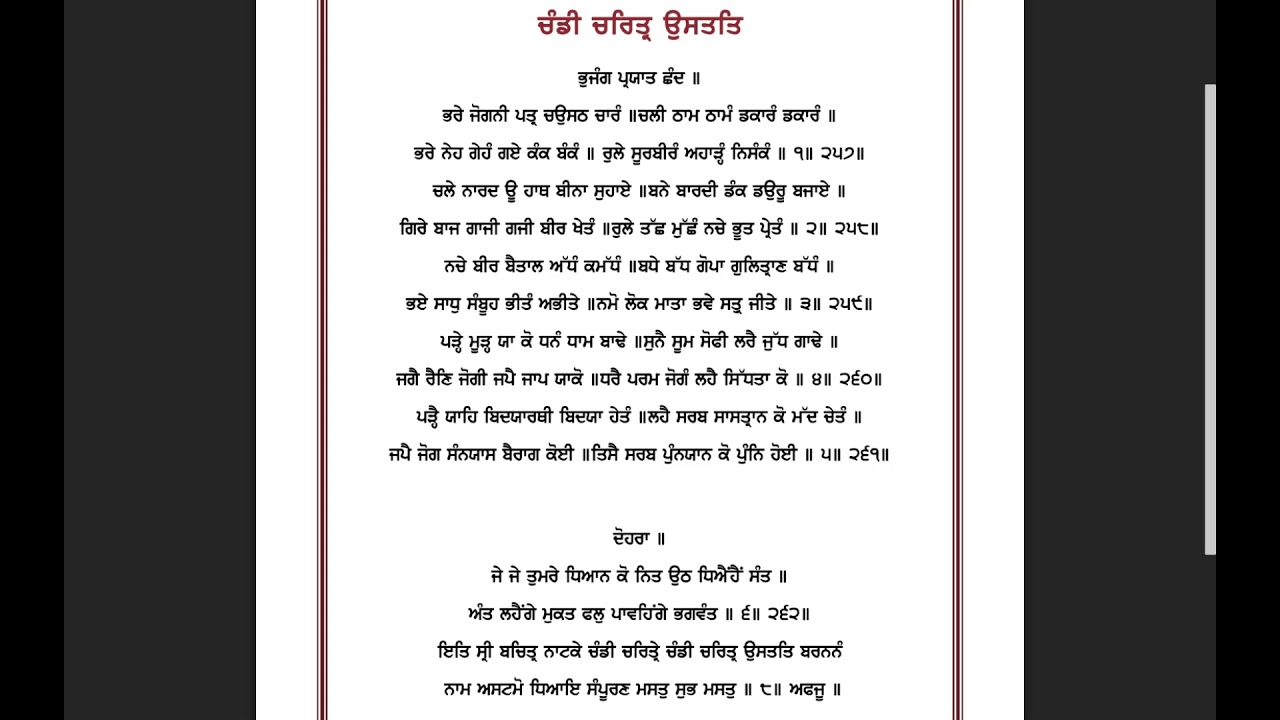 ਚੰਡੀ ਚਰਿਤ੍ਰ ਉਸਤਤਿ
ਭੁਜੰਗ ਪ੍ਰਯਾਤ ਛੰਦ ॥
ਭਰੇ ਜੋਗਨੀ ਪਤ੍ਰ ਚਉਸਠ ਚਾਰੰ ॥ਚਲੀ ਠਾਮ ਠਾਮੰ ਡਕਾਰੰ ਡਕਾਰੰ ॥
ਭਰੇ ਨੇਹ ਗੇਹੰ ਗਏ ਕੰਕ ਬੰਕੰ ॥ ਰੁਲੇ ਸੂਰਬੀਰੰ ਅਹਾੜ੍ਹੰ ਨਿਸੰਕੰ ॥ ੧॥ ੨੫੭॥
ਚਲੇ ਨਾਰਦ ਊ ਹਾਥ ਬੀਨਾ ਸੁਹਾਏ ॥ਬਨੇ ਬਾਰਦੀ ਡੰਕ ਡਉਰੂ ਬਜਾਏ ॥
ਗਿਰੇ ਬਾਜ ਗਾਜੀ ਗਜੀ ਬੀਰ ਖੇਤੰ ॥ਰੁਲੇ ਤੱਛ ਮੁੱਛੰ ਨਚੇ ਭੂਤ ਪ੍ਰੇਤੰ ॥ ੨॥ ੨੫੮॥
ਨਚੇ ਬੀਰ ਬੈਤਾਲ ਅੱਧੰ ਕਮੱਧੰ ॥ਬਧੇ ਬੱਧ ਗੋਪਾ ਗੁਲਿਤ੍ਰਾਣ ਬੱਧੰ ॥
ਭਏ ਸਾਧੁ ਸੰਬੂਹ ਭੀਤੰ ਅਭੀਤੇ ॥ਨਮੋ ਲੋਕ ਮਾਤਾ ਭਵੇ ਸਤ੍ਰੁ ਜੀਤੇ ॥ ੩॥ ੨੫੯॥
ਪੜ੍ਹੇ ਮੂੜ੍ਹ ਯਾ ਕੋ ਧਨੰ ਧਾਮ ਬਾਢੇ ॥ਸੁਨੈ ਸੂਮ ਸੋਫੀ ਲਰੈ ਜੁੱਧ ਗਾਢੇ ॥
ਜਗੈ ਰੈਣਿ ਜੋਗੀ ਜਪੈ ਜਾਪ ਯਾਕੋ ॥ਧਰੈ ਪਰਮ ਜੋਗੰ ਲਹੈ ਸਿੱਧਤਾ ਕੋ ॥ ੪॥ ੨੬੦॥
ਪੜ੍ਹੈ ਯਾਹਿ ਬਿਦਯਾਰਥੀ ਬਿਦਯਾ ਹੇਤੰ ॥ਲਹੈ ਸਰਬ ਸਾਸਤ੍ਰਾਨ ਕੋ ਮੱਦ ਚੇਤੰ ॥
ਜਪੈ ਜੋਗ ਸੰਨਯਾਸ ਬੈਰਾਗ ਕੋਈ ॥ਤਿਸੈ ਸਰਬ ਪੁੰਨਯਾਨ ਕੋ ਪੁੰਨਿ ਹੋਈ ॥ ੫॥ ੨੬੧॥
ਦੋਹਰਾ ॥
ਜੇ ਜੇ ਤੁਮਰੇ ਧਿਆਨ ਕੋ ਨਿਤ ਉਠ ਧਿਐਹੈਂ ਸੰਤ ॥
ਅੰਤ ਲਹੈਂਗੇ ਮੁਕਤ ਫਲੁ ਪਾਵਹਿਂਗੇ ਭਗਵੰਤ ॥ ੬॥ ੨੬੨॥
ਇਤਿ ਸ੍ਰੀ ਬਚਿਤ੍ਰ ਨਾਟਕੇ ਚੰਡੀ ਚਰਿਤ੍ਰੇ ਚੰਡੀ ਚਰਿਤ੍ਰ ਉਸਤਤਿ ਬਰਨਨੰ
ਨਾਮ ਅਸਟਮੋ ਧਿਆਇ ਸੰਪੂਰਣ ਮਸਤੁ ਸੁਭ ਮਸਤੁ ॥ ੮॥ ਅਫਜੂ ॥